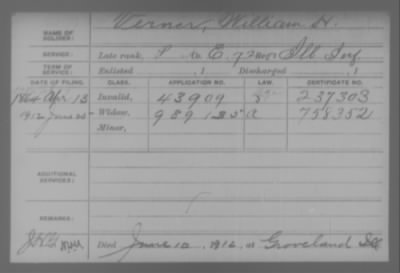 NAME OF SOLDIER: Verner, William H.
SERVICE: Late rank, P Co. E, 72 Regt Ill Inf
TERM OF SERVICE: Enlisted , 1 Discharged , 1
DATE OF FILING. CLASS. APPLICATION NO. LAW. CERTIFICATE NO.
1864 Apr 13 Invalid, 43909 237303
1912 June Widow, 989135 758352
Minor,
ADDITIONAL SERVICES:
REMARKS:
Died June 12, 1912, at Groveland Ill